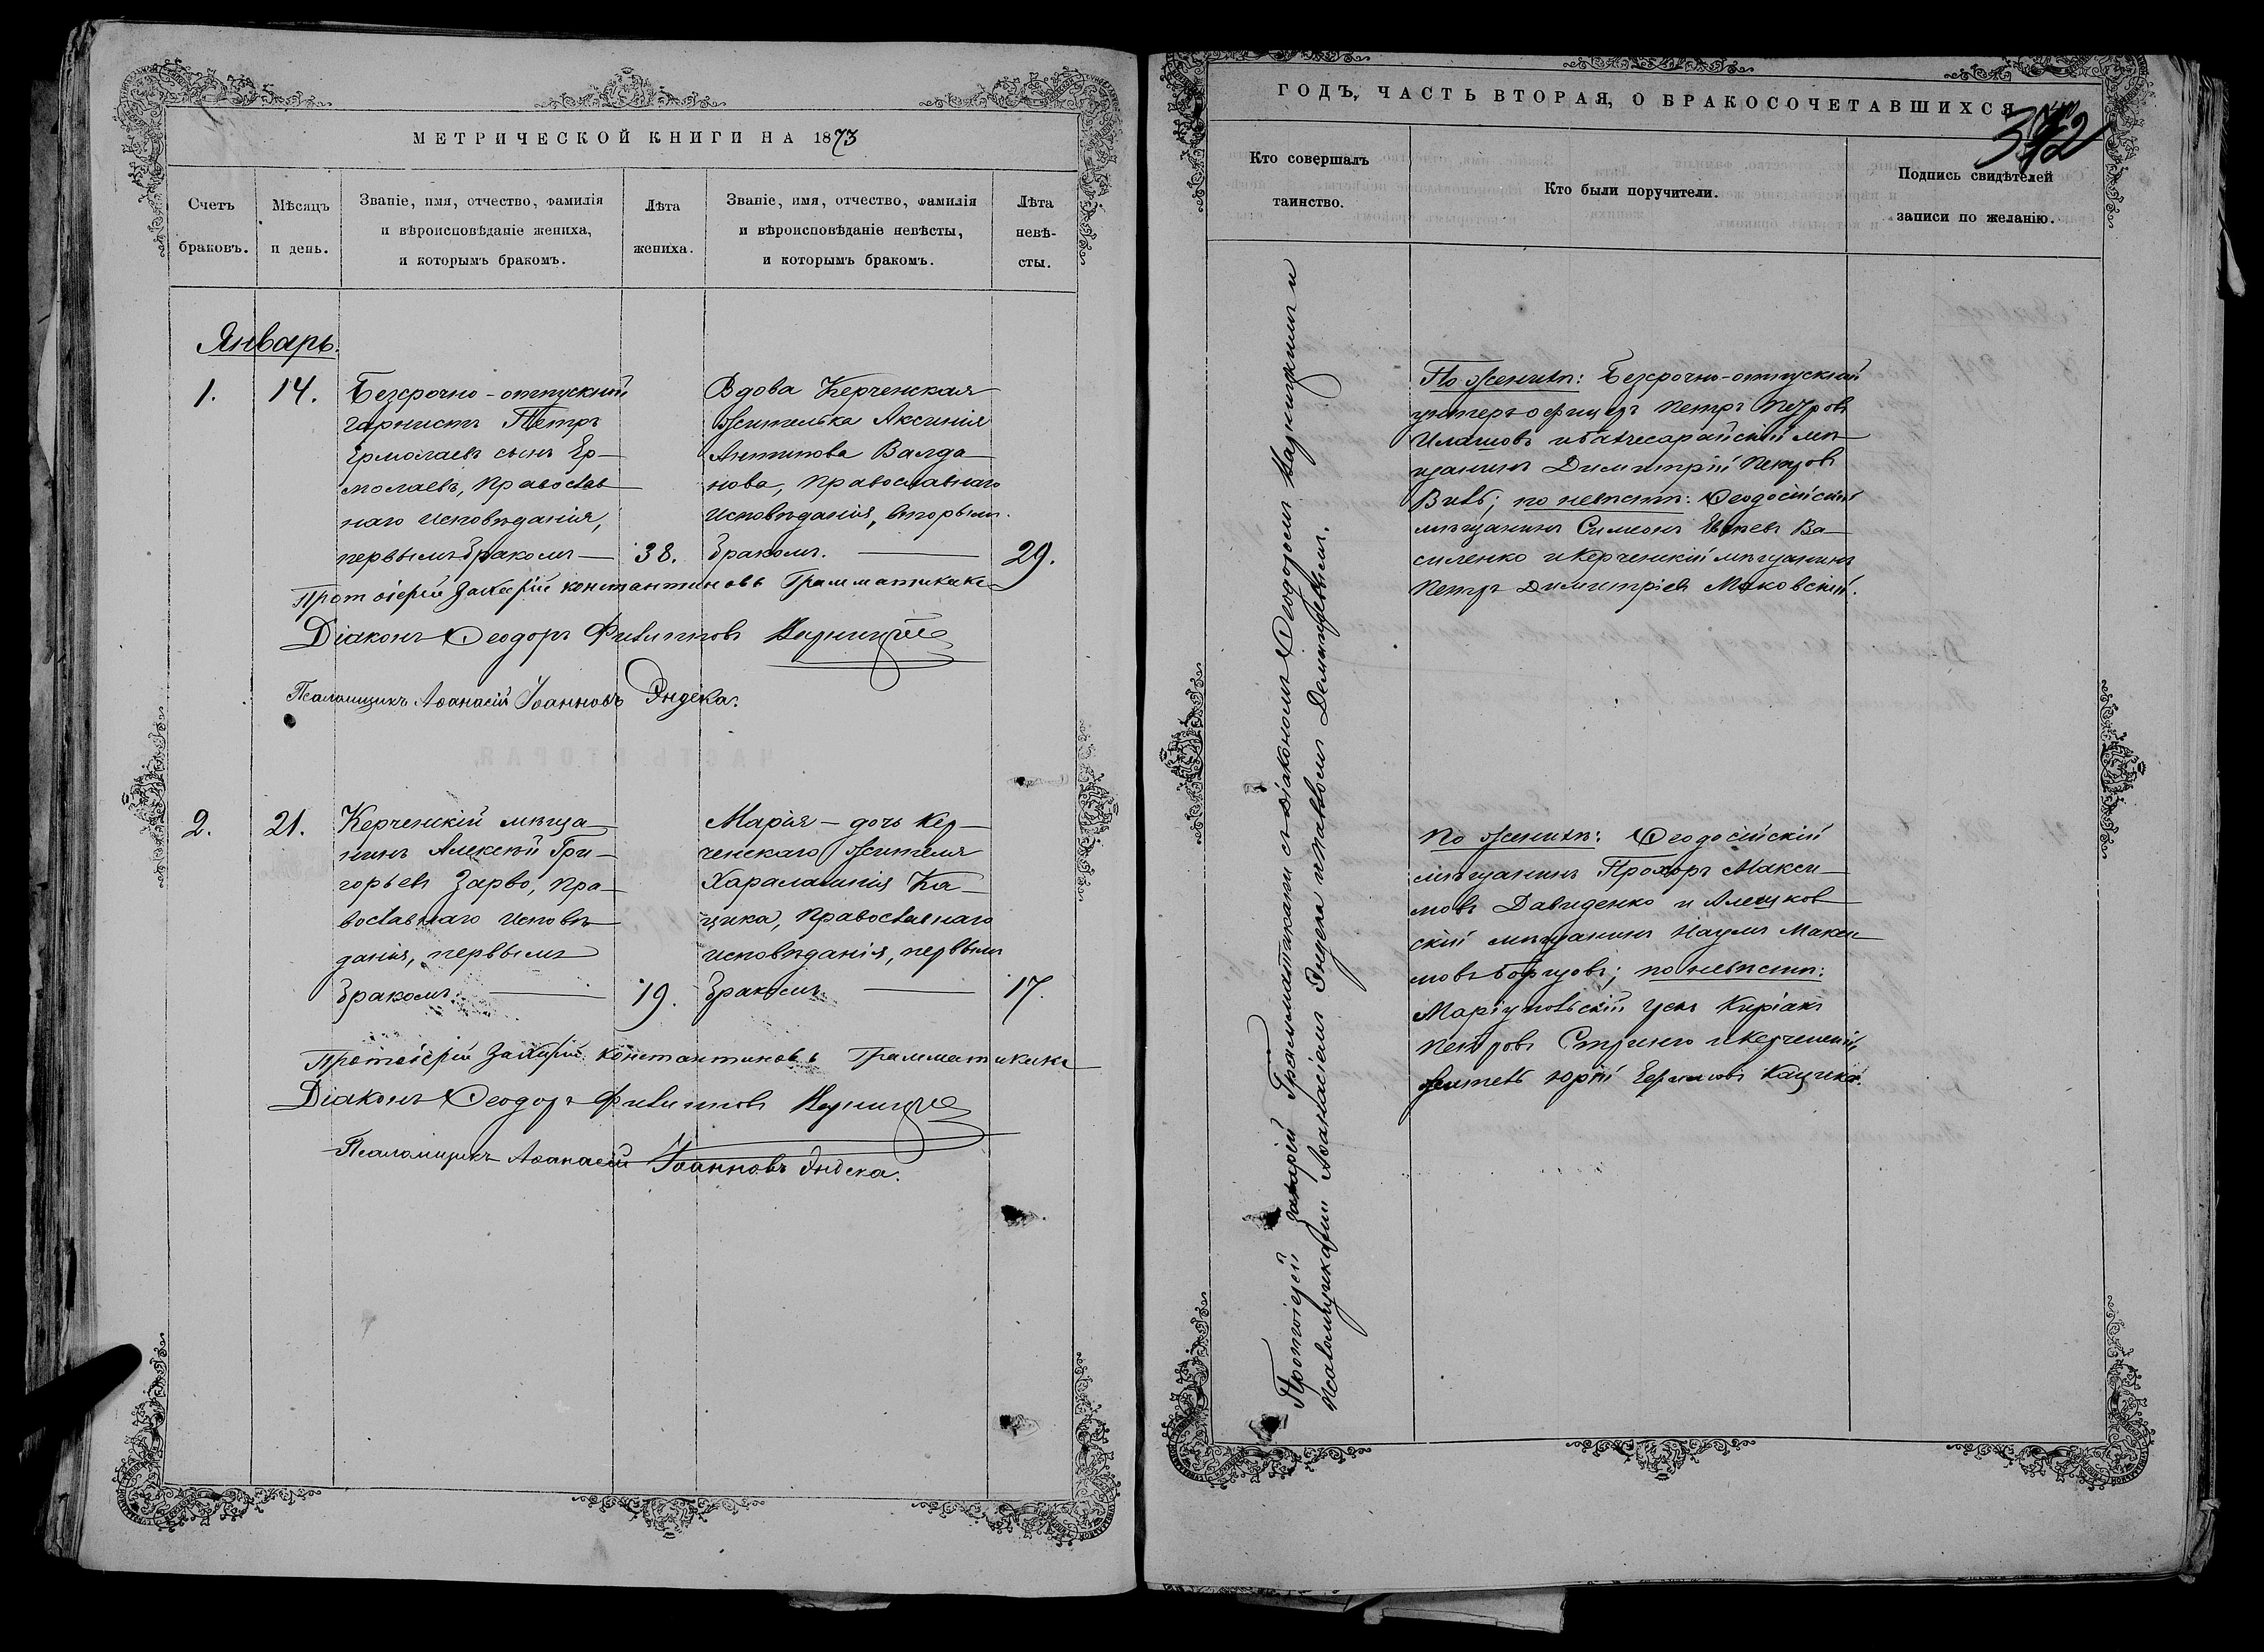 МЕТРИЧЕСКОЙ КНИГИ НА 1873
Счетъ браковъ.
Мѣсяцъ и день.
Званіе, имя, отчество, фамилія
и вѣроисповѣданіе жениха,
и которымъ бракомъ.
Лѣта жениха.
Званіе, имя, отчество, фамилія
и вѣроисповѣданіе невѣсты,
и которымъ бракомъ.
Лѣта невѣ-
сты.
Январь.
1.
14.
Безсрочно-отпускной
горнистъ Петръ
Ермолаевъ сынъ Ер-
молаевъ, православ
наго исповѣданія,
первымъ бракомъ
38.
Вдова Керченская
жителька Аксинія
Антипова Валда
нова, православнаго
исповѣданія, вторымъ
бракомъ.
29.
Протоіерей Захарій Константиновъ Грамматикаки
Діаконъ Ѳеодоръ Филипповъ
Псаломщикъ Аѳанасій Іоанновъ Эндека.
2.
21.
Керченскій мѣща-
нинъ Алексѣй Гри-
горьевъ Зарво, пра-
вославнаго исповѣ-
данія, первымъ
бракомъ.
19.
Марія - дочь Кер-
ченскаго жителя
Харалампія Ка-
цика, православнаго
исповѣданія, первымъ
бракомъ.
17.
Протоіерей Захарій Константиновъ Грамматикаки
Діаконъ Ѳеодоръ Филипповъ
Псаломщикъ Аѳанасій Іоанновъ Эндека.
ГОДЪ, ЧАСТЬ ВТОРАЯ, О БРАКОСОЧЕТАВШИХСЯ
372
Кто совершалъ
таинство.
Кто были поручители.
Подпись свидѣтелей
записи по желанію.
Протоіерей Захарій Грамматикаки съ діакономъ Ѳеодоромъ и
псаломщиками Аѳанасіемъ Эндека и Павломъ Деминтьевымъ.
По женихѣ: Безсрочно-отпускной
унтеръ-офицеръ Петръ Петровъ
и Бахчесарайскій мѣ-
щанинъ Димитрій Петровъ
по невѣстѣ: Ѳеодосійскій
мѣщанинъ Симеонъ Ва-
силенко и Керченскій мѣщанинъ
Петръ Димитріевъ Маковскій.
По женихѣ: Ѳеодосійскій
мѣщанинъ Прохоръ Макси-
мовъ Давиденко и Алешков
скій мѣщанинъ Наумъ Макси-
мовъ Борщовъ; по невѣстѣ:
Маріупольскій Киріакъ
Петровъ и Керченскій
житель Юрій Кацика.